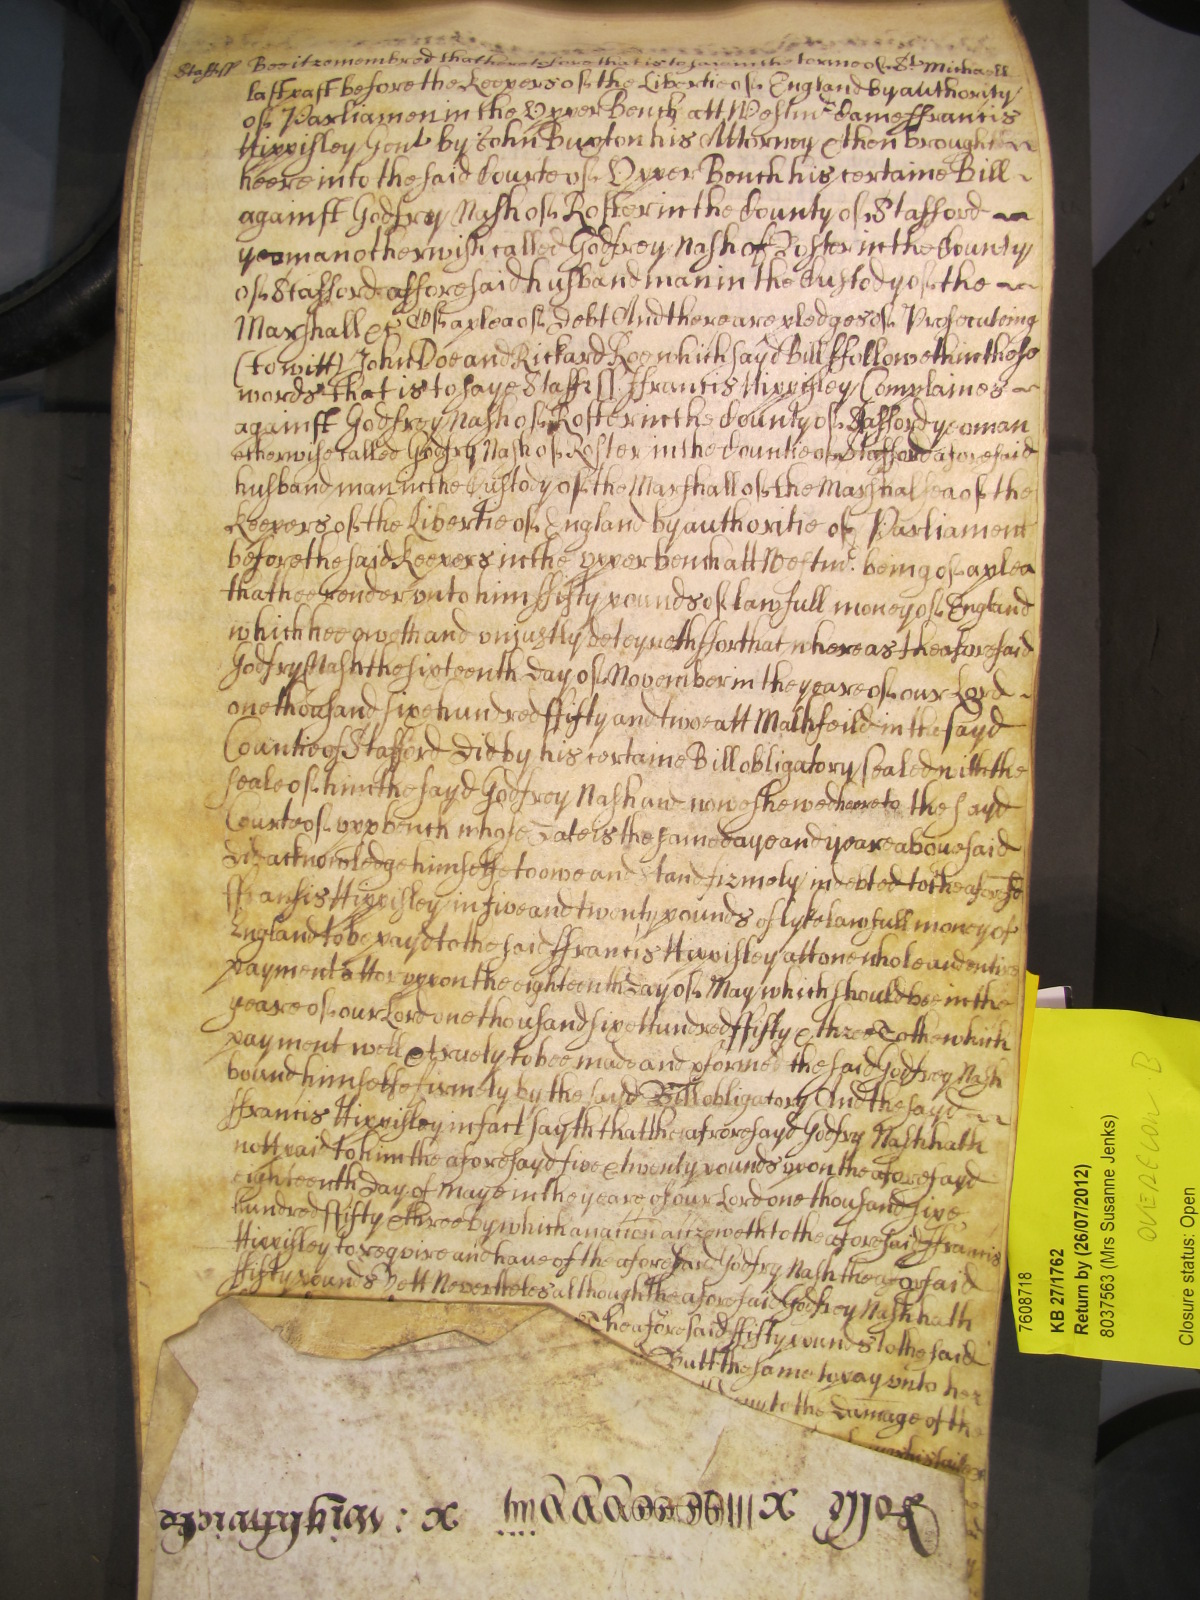 Staff ss Bee it remembred that heretofore that is to say in the terme of St Michaell
last past before the Keepers of the Libertie of England by authority
of Parliamen in the Upper Bench att Westmr Came ffrancis
Hippisley Gent by John Buxton his Attorney & then brought
heere into the said Courte of Upper Bench his certaine Bill
against Godfrey Nash of Roster in the County of Stafford
yeoman otherwise called Godfrey Nash of Roster in the County
of Stafford afforesaid husbandman in the Custody of the
Marshall &c Of a plea of Debt And there are pledges of Prosecuteing
(to witt) John Doe and Richard Roe which sayd Bill ffolloweth in these
words that is to saye Staff ss ffrancis Hippisley Complaines
against Godfrey Nash of Roster in the County of Stafford yeoman
otherwise called Godfry Nash of Roster in the Countie of Stafford aforesaid
husbandman in the Custody of the Marshall of the Marshalsea of the
Keepers of the Libertie of England by authoritie of Parliament
before the said Keepers in the upper bench att Westmr. being of a plea
that hee render unto him ffifty pounds of lawfull money of England
which hee oweth and unjustly deteyneth ffor that whereas the aforesaid
Godfry Nash the sixteenth day of November in the yeare of our Lord
one thousand sixe hundred ffifty and twoe att Mathfeild in the sayd
Countie of Stafford did by his certaine Bill obligatory sealed with the
seale of him the sayd Godfrey Nash and nowe shewed heere to the sayd
Courte of upp bench whose date is the same daye and yeare abovesaid
did acknowledge himselfe to owe and stand firmely indebted to the aforesd
ffransis Hippisley in five and twenty pounds of lyke lawfull money of
England to be payd to the said ffrancis Hippisley att one whole and entire
payment att or uppon the eighteenth day of May which should bee in the
yeare of our Lord one thousand sixe hundred ffifty & three To the which
payment well & truely to bee made and pformed the said Godfrey Nash
bound himselfe firmely by the sayd Bill obligatory And the sayd
ffrancis Hippisley in fact sayth that the aforesayd Godfry Nash hath
nott paid to him the aforesayd five & twenty pounds upon the aforesayd
eighteenth day of Maye in the yeare of our Lord one thousand sixe
hundred ffifty & three by which an action accreweth to the aforesaid ffrancis
Hippisley to require and have of the aforesaid Godfry Nash the aforesaid
ffifty pounds Yett Neverthelesse although the aforesaid Godfrey Nash hath
The aforesaid ffifty pounds to the said
Butt the same to pay unto her
to the damage of the
Rolle x : Wightwicke
7608718
KB 27/1762
Return by (26/07/2012)
8037563 (Mrs Susanne Jenks)
Closure status: Open